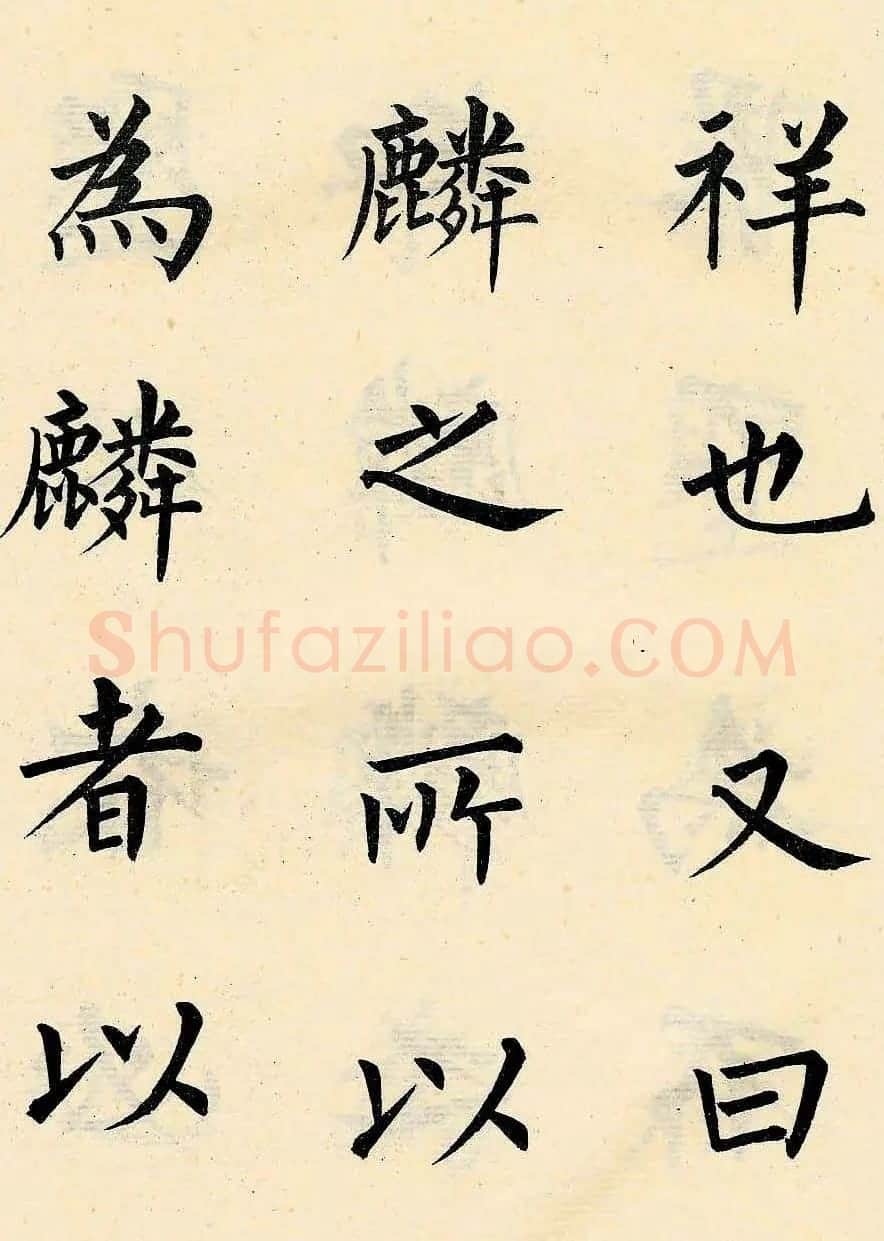 祥也又曰
麟之所以
為麟者以
Shufaziliao.COM